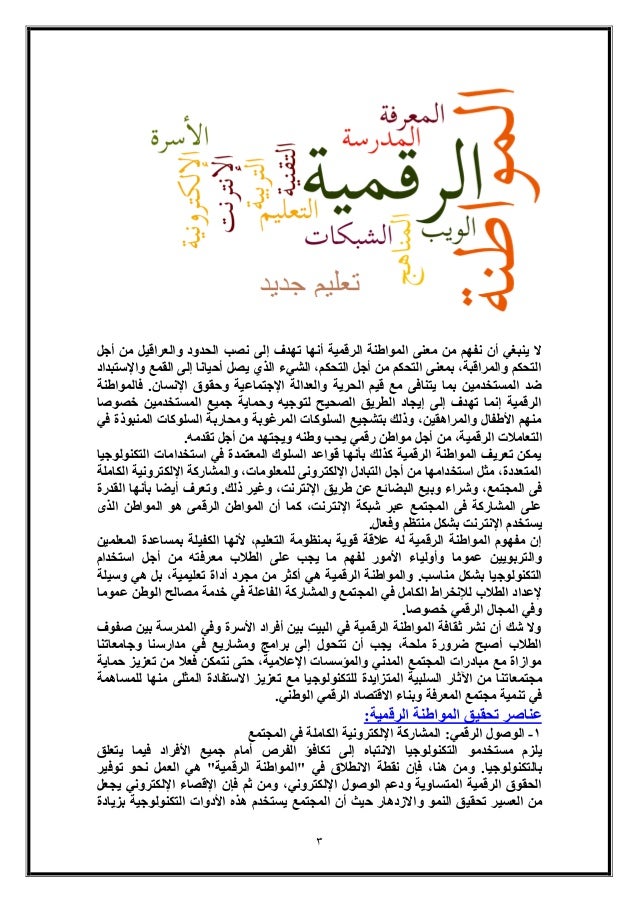 المعرفة
المدرسة
الأسرة
المواطنة
الرقمية
التقنية
التربية
الإنترنت
الإلكترونية
التعليم
الويب
الشبكات
المناهج
تعليم جديد
لا ينبغي أن نفهم من معنى المواطنة الرقمية أنها تهدف إلى نصب الحدود والعراقيل من أجل
التحكم والمراقبة، بمعنى التحكم من أجل التحكم، الشيء الذي يصل أحيانا إلى القمع والإستبداد
ضد المستخدمين بما يتنافى مع قيم الحرية والعدالة الإجتماعية وحقوق الإنسان. فالمواطنة
الرقمية إنما تهدف إلى إيجاد الطريق الصحيح لتوجيه وحماية جميع المستخدمين خصوصا
منهم الأطفال والمراهقين، وذلك بتشجيع السلوكات المرغوبة ومحاربة السلوكات المنبوذة في
التعاملات الرقمية، من أجل مواطن رقمي يحب وطنه ويجتهد من أجل تقدمه.
يمكن تعريف المواطنة الرقمية كذلك بأنها قواعد السلوك المعتمدة في استخدامات التكنولوجيا
المتعددة، مثل استخدامها من أجل التبادل الإلكترونى للمعلومات، والمشاركة الإلكترونية الكاملة
فى المجتمع، وشراء وبيع البضائع عن طريق الإنترنت، وغير ذلك. وتعرف أيضا بأنها القدرة
على المشاركة فى المجتمع عبر شبكة الإنترنت، كما أن المواطن الرقمى هو المواطن الذى
يستخدم الإنترنت بشكل منتظم وفعال.
إن مفهوم المواطنة الرقمية له علاقة قوية بمنظومة التعليم، لأنها الكفيلة بمساعدة المعلمين
والتربويين عموما وأولياء الأمور لفهم ما يجب على الطلاب معرفته من أجل استخدام
التكنولوجيا بشكل مناسب. والمواطنة الرقمية هي أكثر من مجرد أداة تعليمية، بل هي وسيلة
لإعداد الطلاب للإنخراط الكامل في المجتمع والمشاركة الفاعلة في خدمة مصالح الوطن عموما
وفي المجال الرقمي خصوصا.
ولا شك أن نشر ثقافة المواطنة الرقمية في البيت بين أفراد الأسرة وفي المدرسة بين صفوف
الطلاب أصبح ضرورة ملحة، يجب أن تتحول إلى برامج ومشاريع في مدارسنا وجامعاتنا
موازاة مع مبادرات المجتمع المدني والمؤسسات الإعلامية، حتى نتمكن فعلا من تعزيز حماية
مجتمعاتنا من الآثار السلبية المتزايدة للتكنولوجيا مع تعزيز الاستفادة المثلى منها للمساهمة
في تنمية مجتمع المعرفة وبناء الاقتصاد الرقمي الوطني.
عناصر تحقيق المواطنة الرقمية:
١- الوصول الرقمي: المشاركة الإلكترونية الكاملة في المجتمع
يلزم مستخدمو التكنولوجيا الانتباه إلى تكافؤ الفرص أمام جميع الأفراد فيما يتعلق
بالتكنولوجيا. ومن هنا، فإن نقطة الانطلاق في "المواطنة الرقمية" هي العمل نحو توفير
الحقوق الرقمية المتساوية ودعم الوصول الإلكتروني، ومن ثم فإن الإقصاء الإلكتروني يجعل
من العسير تحقيق النمو والازدهار حيث أن المجتمع يستخدم هذه الأدوات التكنولوجية بزيادة
٣